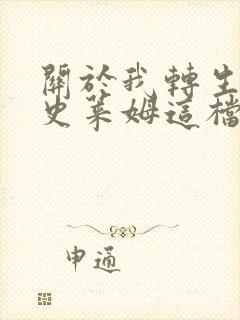 關於我轉生
史萊姆這檔
申通